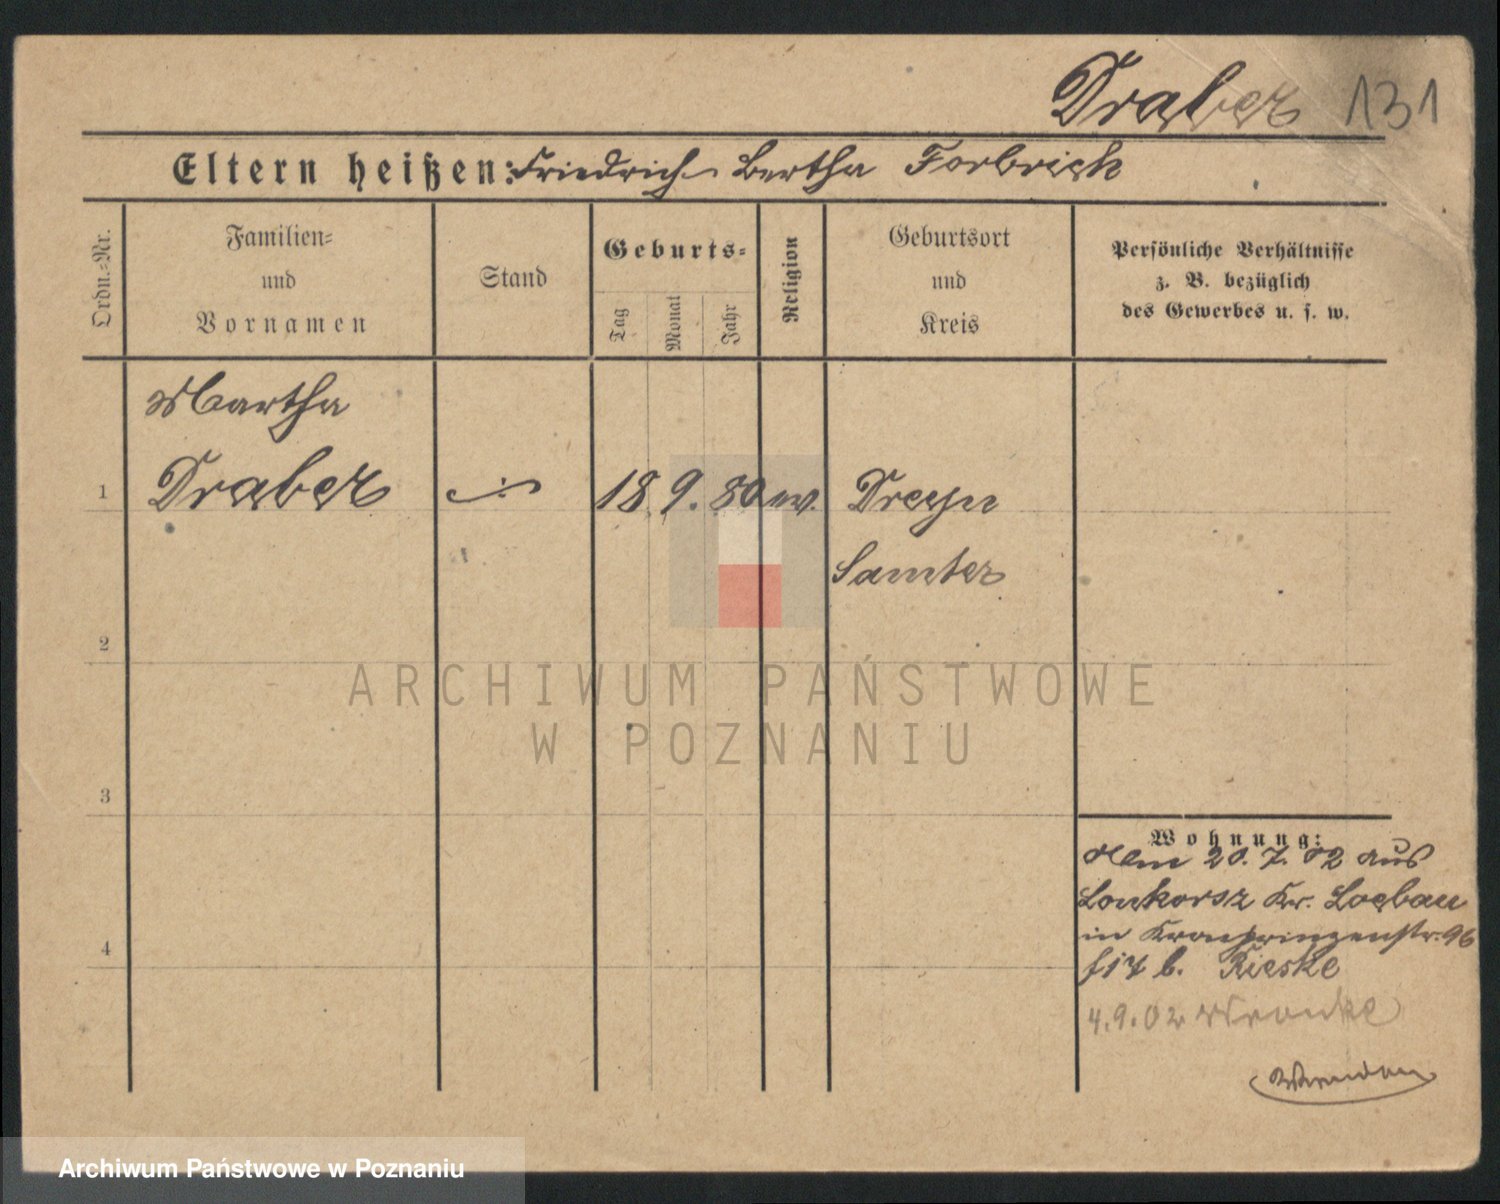 Draber 131
Eltern heißen: Friedrich Bertha Forbrich
Ordn.-Nr.
Familien-
und
Vornamen
Stand
Geburts-
Tag
Monat
Jahr
Religion
Geburtsort
und
Kreis
Persönliche Verhältnisse
z. B. bezüglich
des Gewerbes u. s. w.
Martha
1 Draber 18 9. 80 ev.
Samter
2
ARCHIWUM PAŃSTWOWE
W POZNANIU
3
Wohnung:
20. 7. 02 aus
Lonkorsz Kr. Loebau
in Kronprinzenstr. 96
4
b. Rieske
4. 9. 02 Wronke
Archiwum Państwowe w Poznaniu